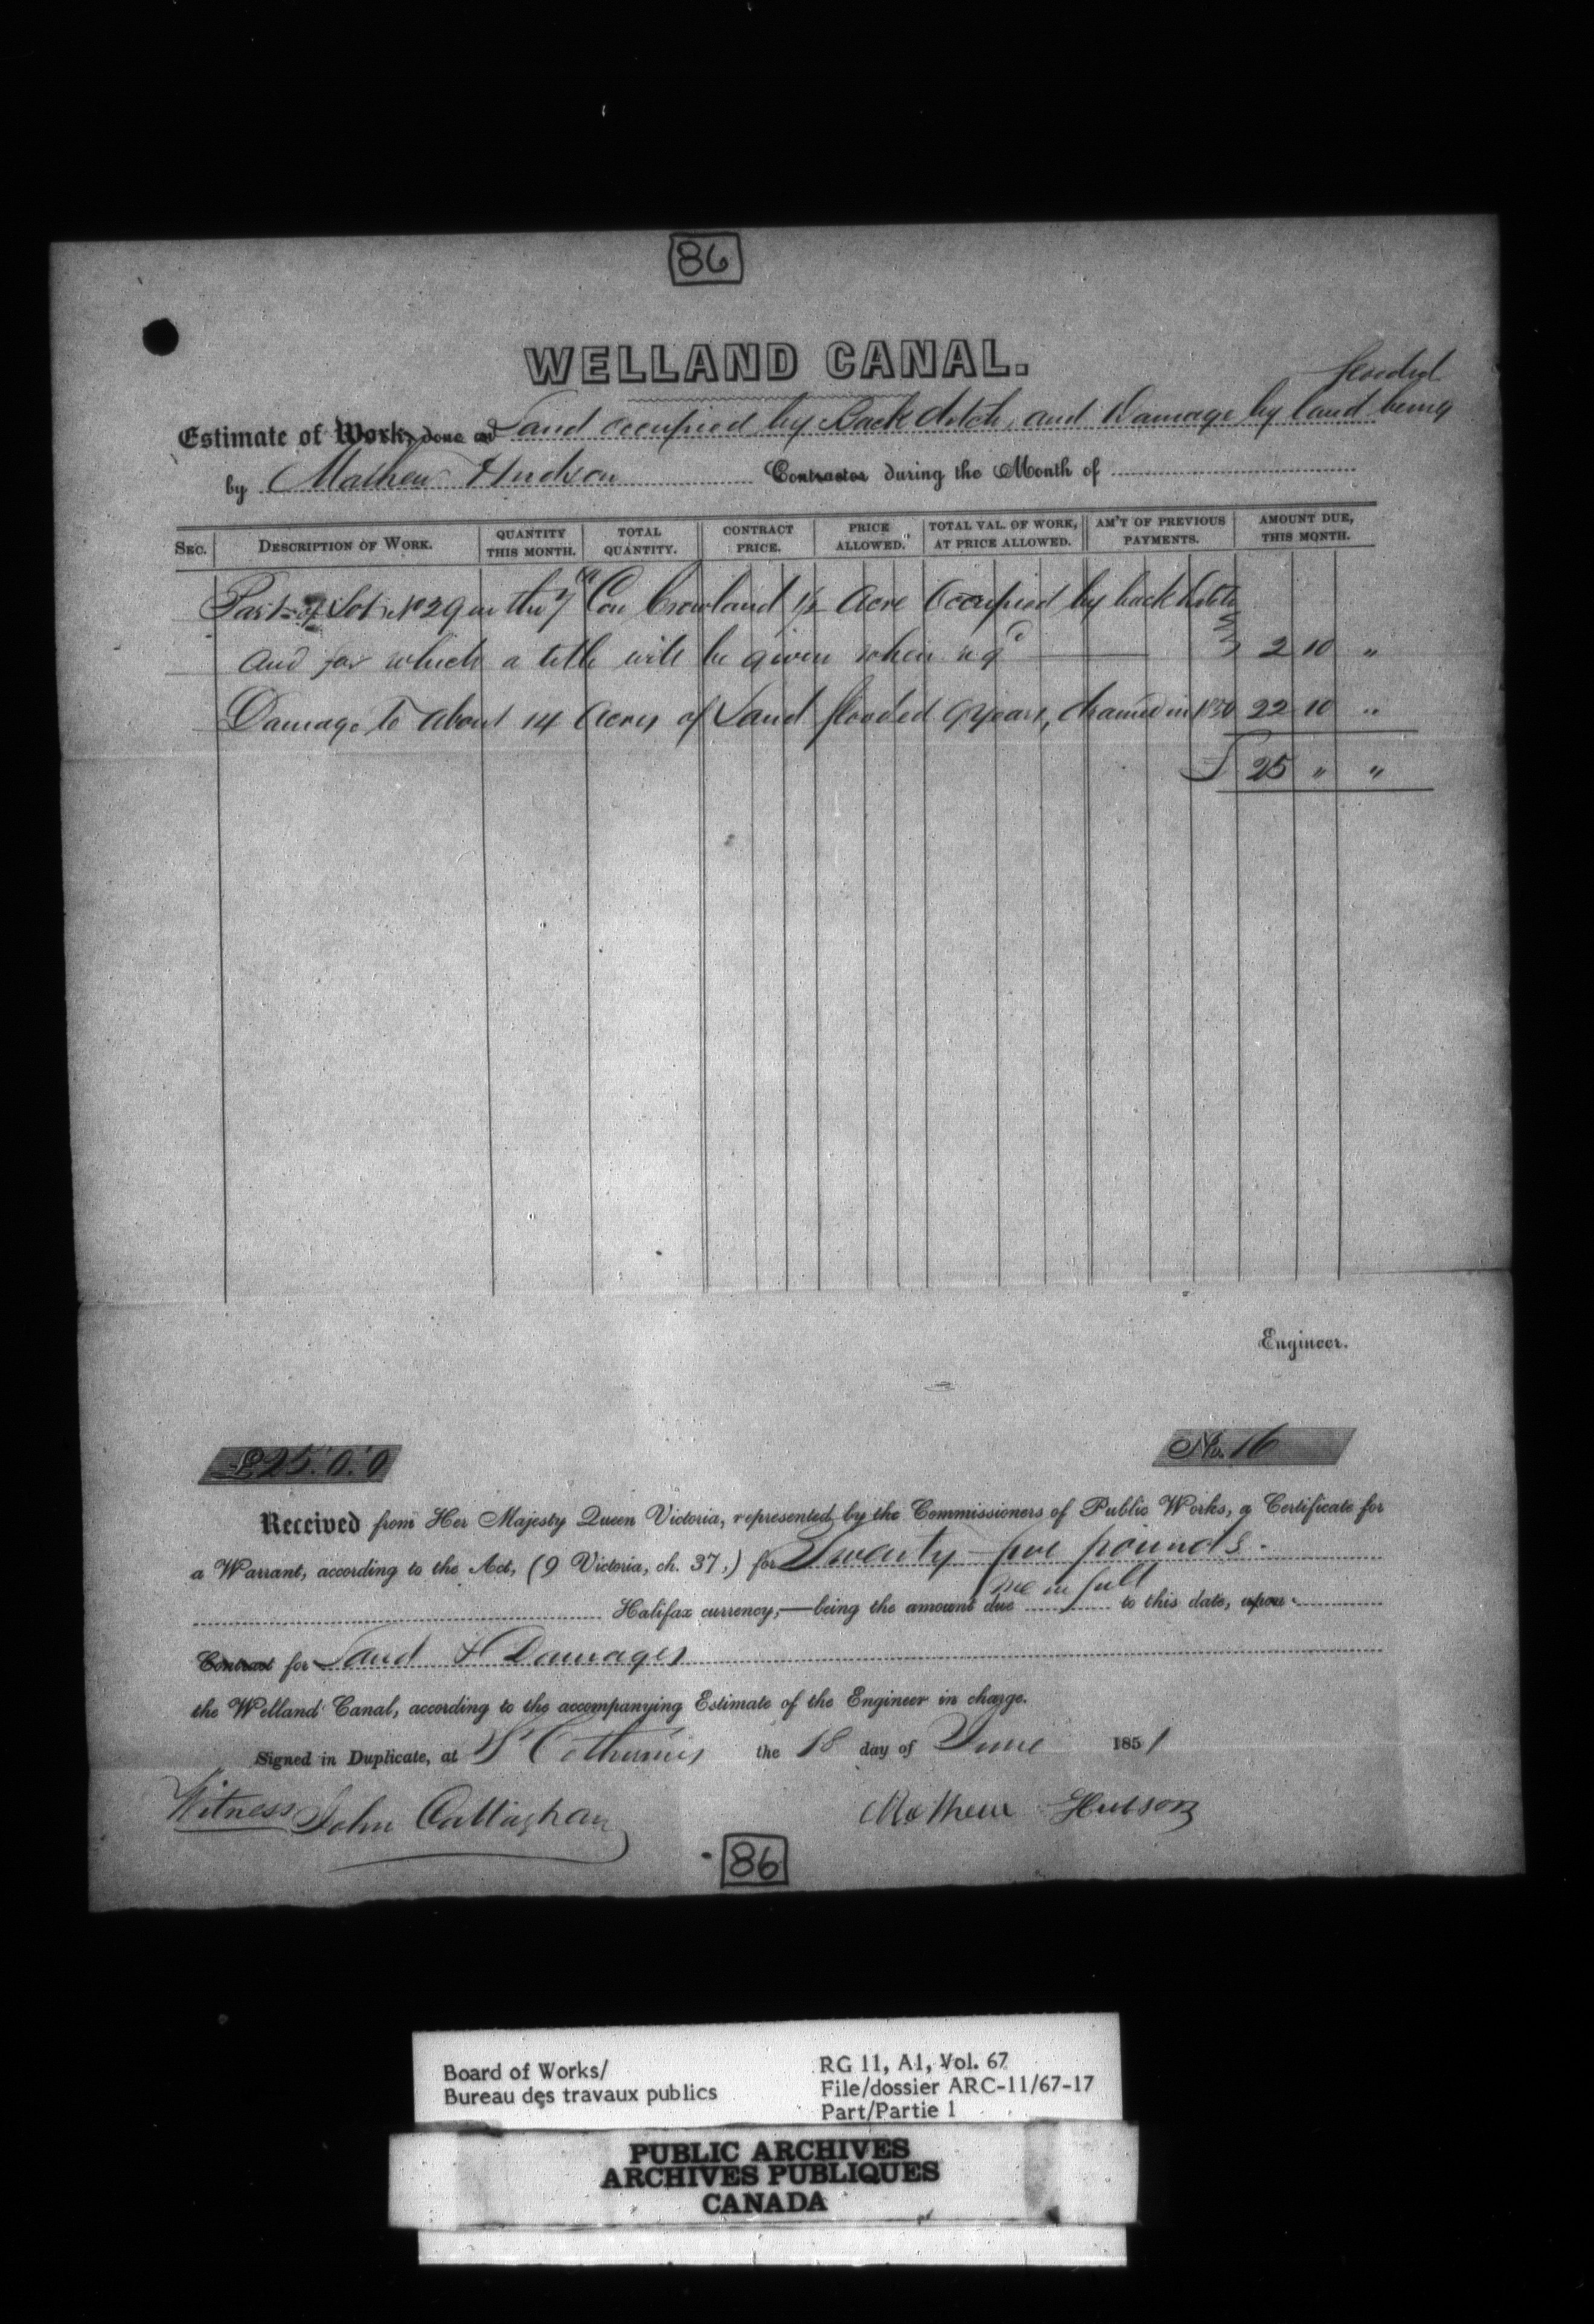 86
WELLAND CANAL.
flooded
Estimate of Work, done and Land occupied by Back ditch, and Damage by land being
by Mathew Hudson Contractor during the Month of
SEC. DESCRIPTION OF WORK. QUANTITY THIS MONTH. TOTAL QUANTITY. CONTRACT PRICE. PRICE ALLOWED. TOTAL VAL. OF WORK, AT PRICE ALLOWED. AM'T OF PREVIOUS PAYMENTS. AMOUNT DUE, THIS MONTH.
Part of Lot No 29 in the 7th Con Crowland 1/2 Acre Occupied by back ditch
and for which a title will be given when reqd 2 10 "
Damage to about 14 Acres of Land flooded 9 years, drained in 1850 22 10 "
£ 25 " "
Engineer.
£25.0.0 No. 16
Received from Her Majesty Queen Victoria, represented by the Commissioners of Public Works, a Certificate for
a Warrant, according to the Act, (9 Victoria, ch. 37,) for Twenty five pounds.
Halifax currency,—being the amount due me in full to this date, upon
Contract for Land & Damages
the Welland Canal, according to the accompanying Estimate of the Engineer in charge.
Signed in Duplicate, at St Catharines the 18 day of June 1851
Witness John Callaghan Mathew Hutson
86
Board of Works/ RG 11, A1, Vol. 67
Bureau des travaux publics File/dossier ARC-11/67-17
Part/Partie 1
PUBLIC ARCHIVES
ARCHIVES PUBLIQUES
CANADA